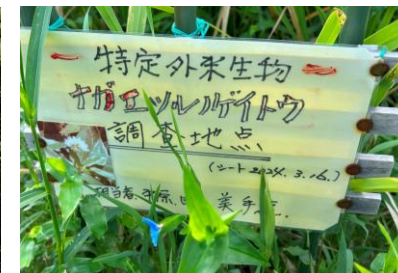 特定外来生物
ナガエツルノゲイトウ
調査地点
(シート2024.3.16.)
担当者